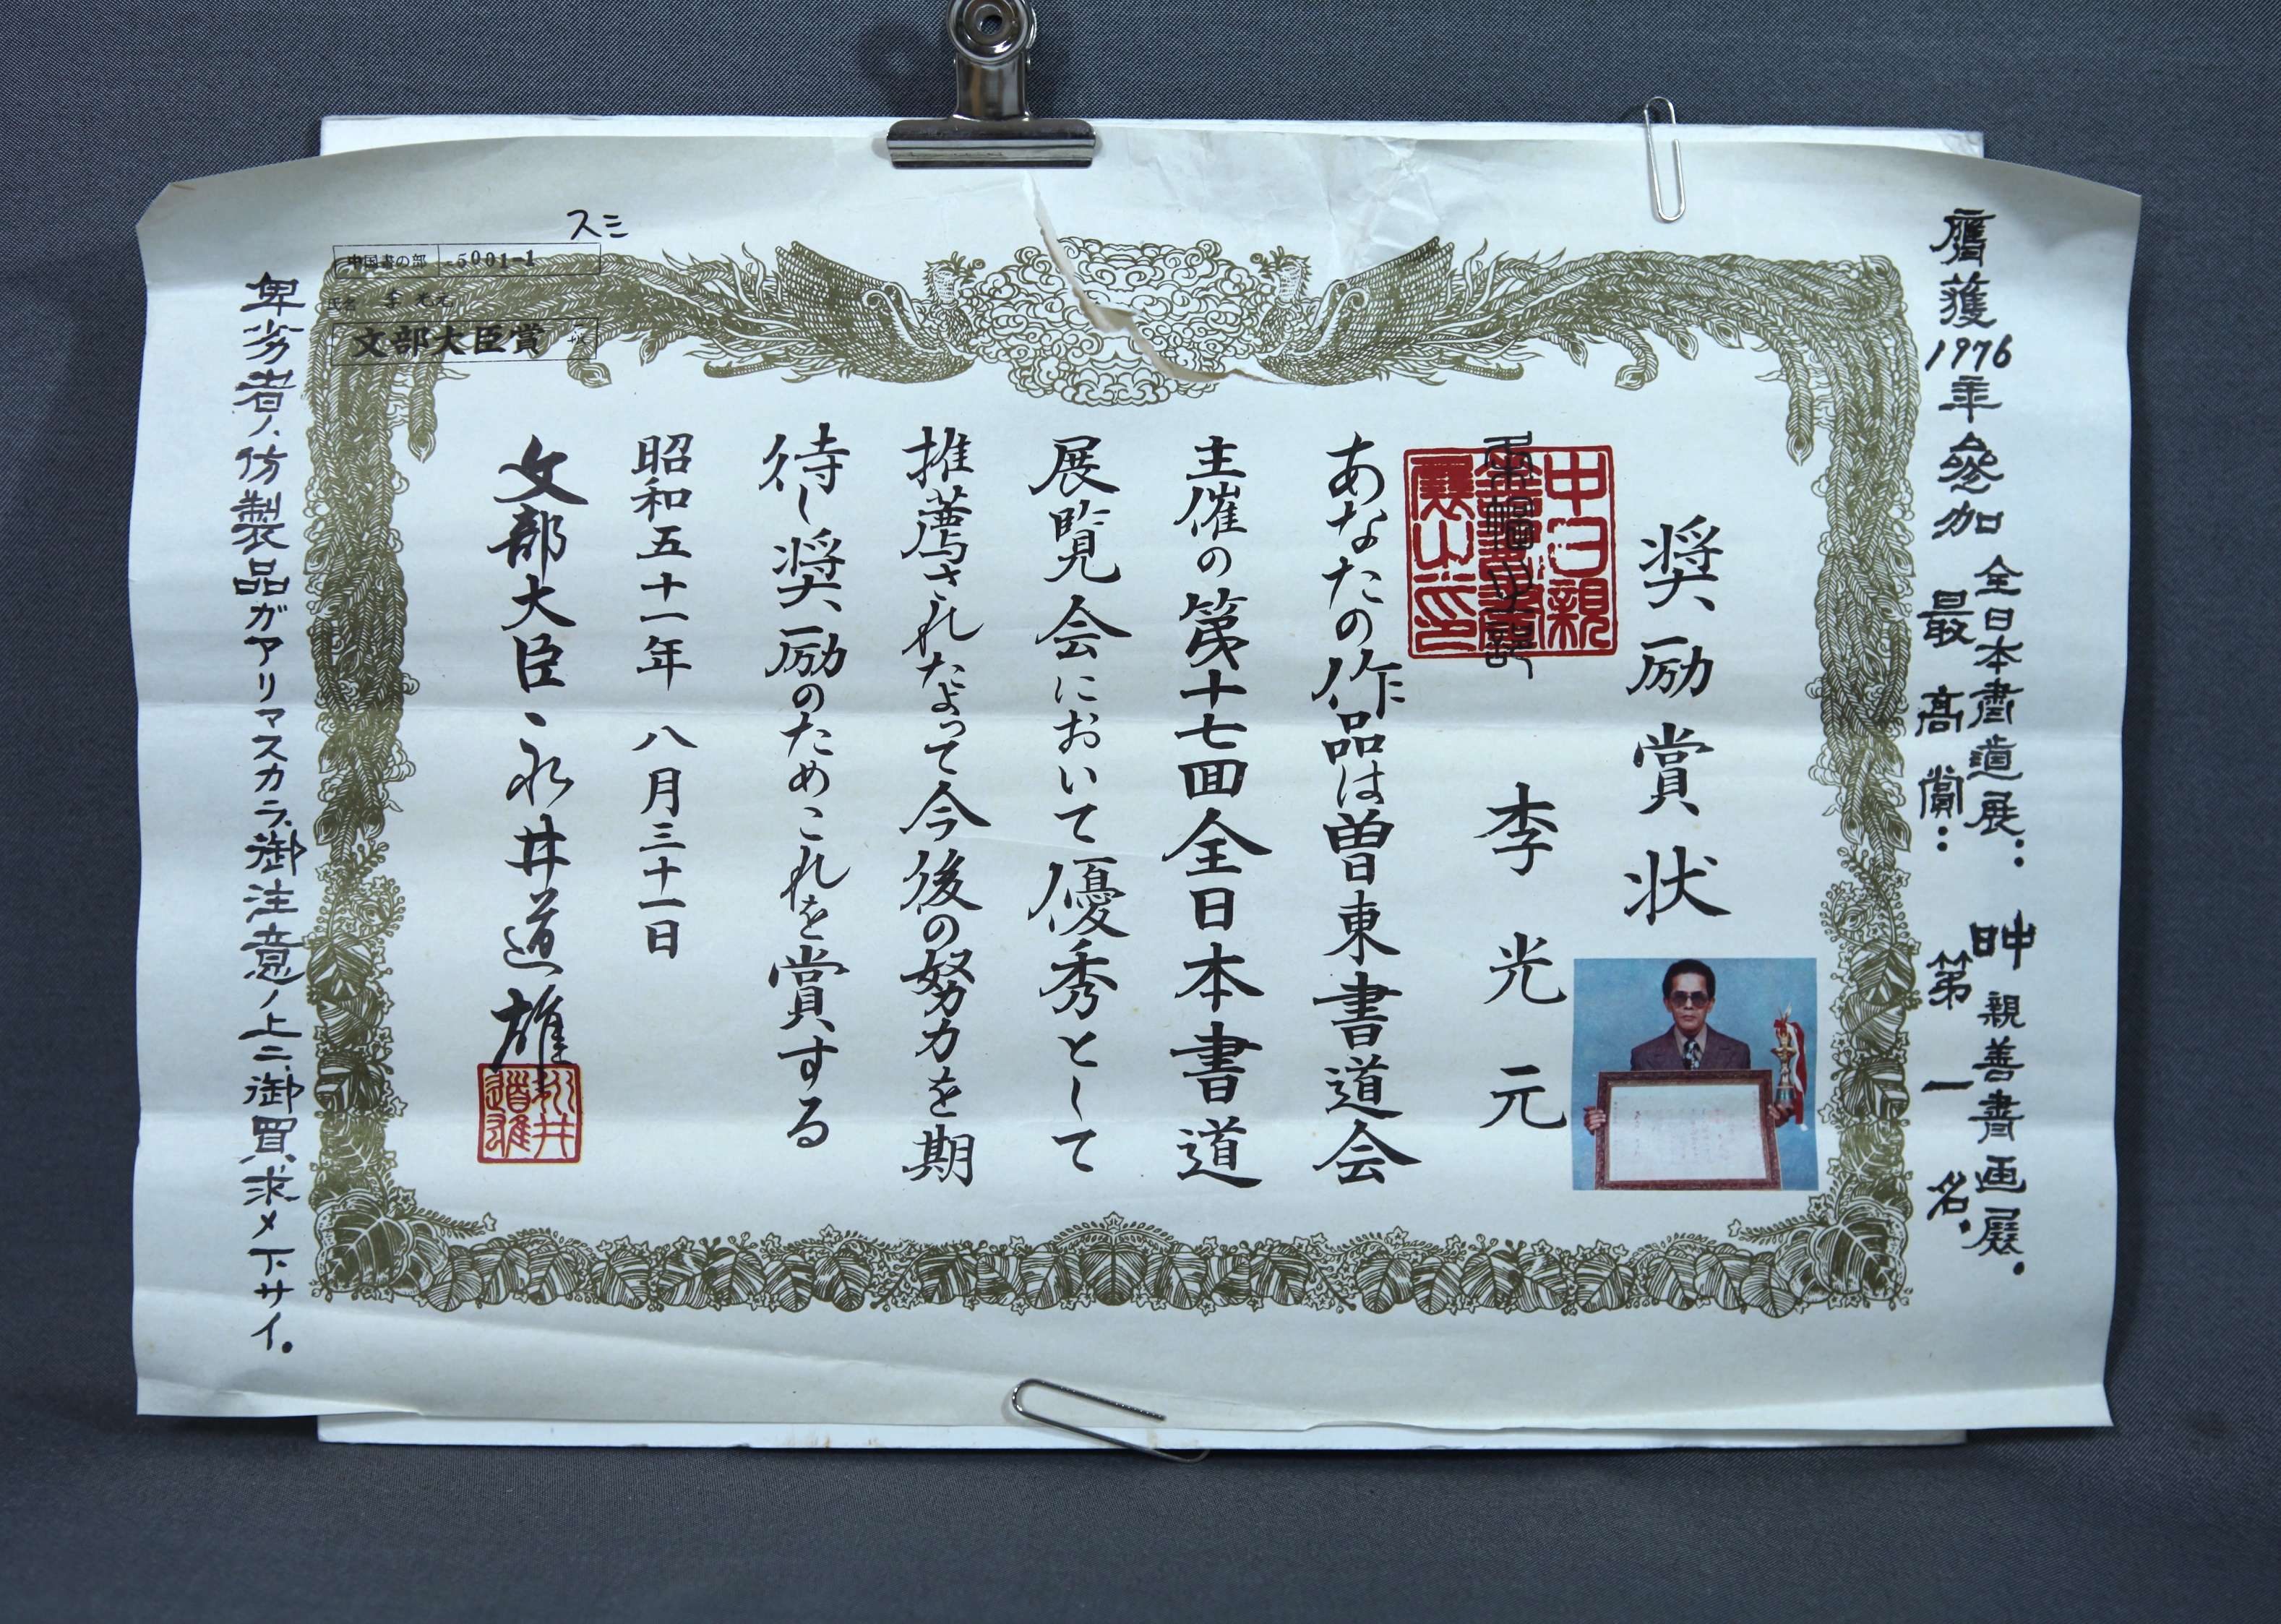 膺獲1976年參加全日本書道展：中日親善書画展．
最高賞：第一名．
奨励賞状
李光元
中日親
善書
展山印
あなたの作品は曽東書道会
主催の第十七回全日本書道
展覧会において優秀として
推薦されたよって今後の努力を期
待し奨励のためこれを賞する
昭和五十一年 八月三十一日
文部大臣 永井道雄
永井
道雄
スミ
中国書の部 -5001-1
氏名 李光元
文部大臣賞
卑劣者ノ仿製品ガアリマスカラ、御注意ノ上ニ、御買求メ下サイ．